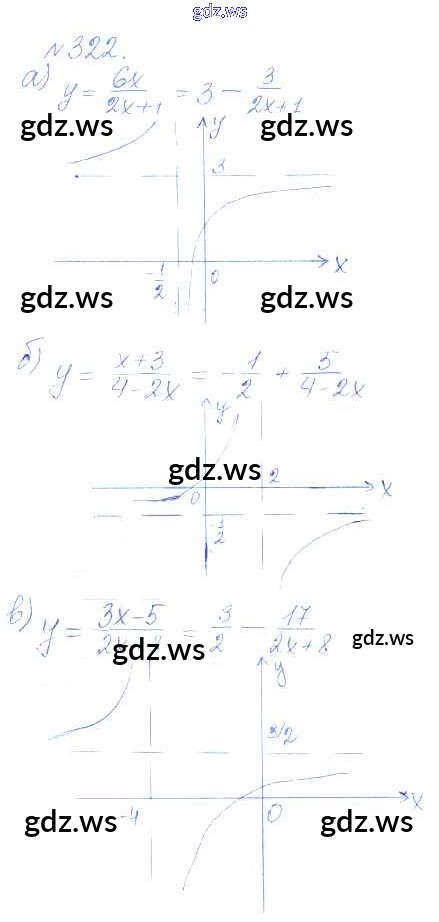 gdz.ws
№322.
а) y = 6x/(2x+1) = 3 - 3/(2x+1)
gdz.ws gdz.ws
y
3
-1/2 0 x
gdz.ws gdz.ws
б) y = (x+3)/(4-2x) = -1/2 + 5/(4-2x)
y
gdz.ws
0 2 x
-1/2
в) y = (3x-5)/(2x+8) = 3/2 - 17/(2x+8)
gdz.ws gdz.ws
y
3/2
-4 0 x
gdz.ws gdz.ws